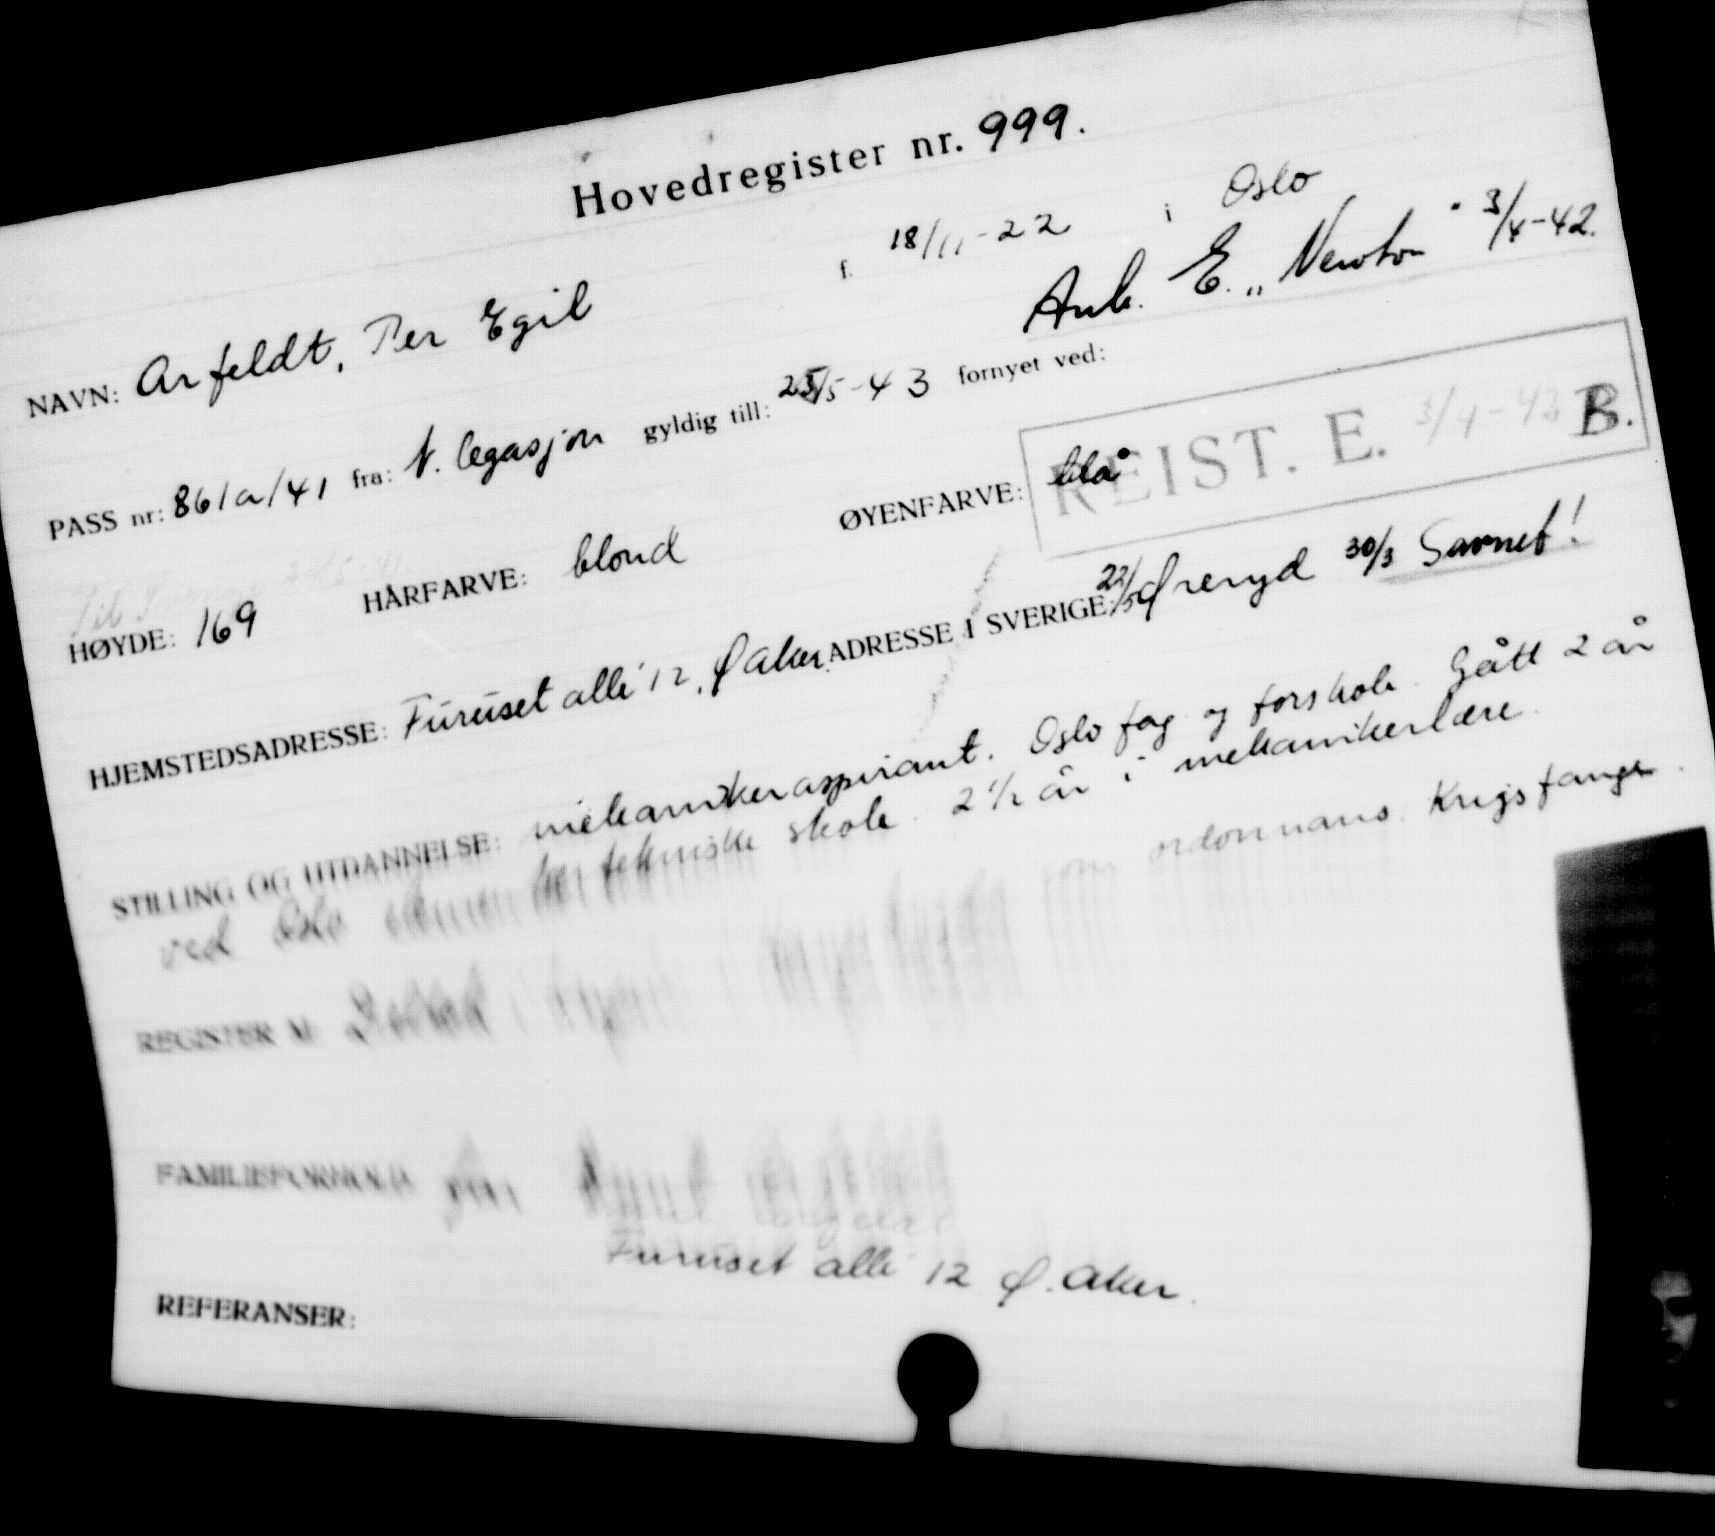 Hovedregister nr. 999.
NAVN: Arfeldt, Per Egil f. 18/11-22 i Oslo
Ank. E. „Newton" 3/4-42.
PASS nr: 861a/41 fra: N. legasjon gyldig till: 25/5-43 fornyet ved:
REIST. E. 3/4-42 B.
HØYDE: 169 HÅRFARVE: blond ØYENFARVE: blå
HJEMSTEDSADRESSE: Furuset allé 12, Ø Aker. ADRESSE I SVERIGE: 22/5 Øreryd 30/3 Savnet!
STILLING OG UTDANNELSE: mekanikeraspirant. Oslo fag og forskole. Gått 2 år
ved Oslo tekniske skole. 2 1/2 år i mekanikerlære.
REGISTER som ordonnans. Krigsfange.
FAMILIEFORHOLD
Furuset allé 12 Ø. Aker.
REFERANSER: